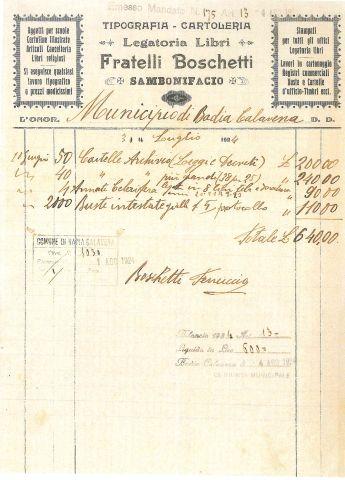 Emesso Mandato N. 175 Art 13
TIPOGRAFIA - CARTOLERIA
Legatoria Libri
Fratelli Boschetti
SAMBONIFACIO
Oggetti per scuole
Cartoline Illustrate
Articoli Cancelleria
Libri religiosi
Si eseguisce qualsiasi
lavoro tipografico
a prezzi modicissimi
Stampati
per tutti gli uffici
Legatoria libri
Lavori in cartonaggio
Registri commerciali
Buste e Cartelle
d'ufficio-Timbri ecc.
L'ONOR. Municipio di Badia Calavena D. D.
Luglio 1924
50 Cartelle Archivio £ 200.00
40 " " più grandi " 240.00
4 " 90.00
2000 Buste intestate " 110.00
Totale £ 640.00
COMUNE DI BADIA CALAVENA
1030
1 AGO 1924
Boschetti Ferruccio
Bilancio 1924 Art 13
Liquidata in Lire 600
Badia Calavena, 4 AGO 1924
LA GIUNTA MUNICIPALE